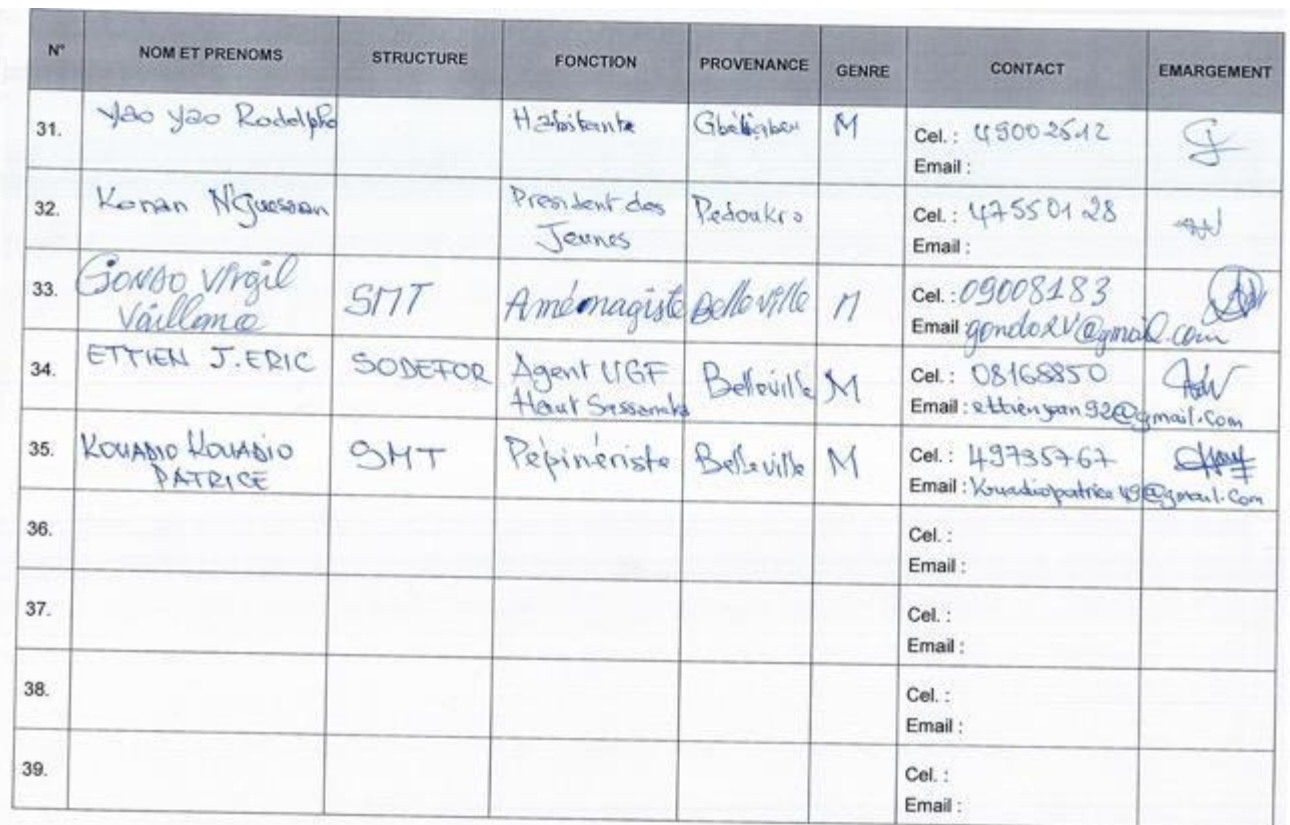 N° NOM ET PRENOMS STRUCTURE FONCTION PROVENANCE GENRE CONTACT EMARGEMENT
31. Yao Yao Rodolphe Habitante M Cel. : 49002512
Email :
32. Konan N'Guessan President des Pedoukro Cel. : 47550128
Jeunes Email :
33. GONDO Virgil SMT Aménagiste Belleville M Cel. : 09008183
Vaillance Email gondo2V@gmail.com
34. ETTIEN J.ERIC SODEFOR Agent UGF Belleville M Cel. : 08168850
Haut Sassandra Email : ettienyan92@gmail.com
35. KOUADIO KOUADIO SMT Pépinériste Belleville M Cel. : 49735767
PATRICE Email : kouadiopatrice49@gmail.com
36. Cel. :
Email :
37. Cel. :
Email :
38. Cel. :
Email :
39. Cel. :
Email :